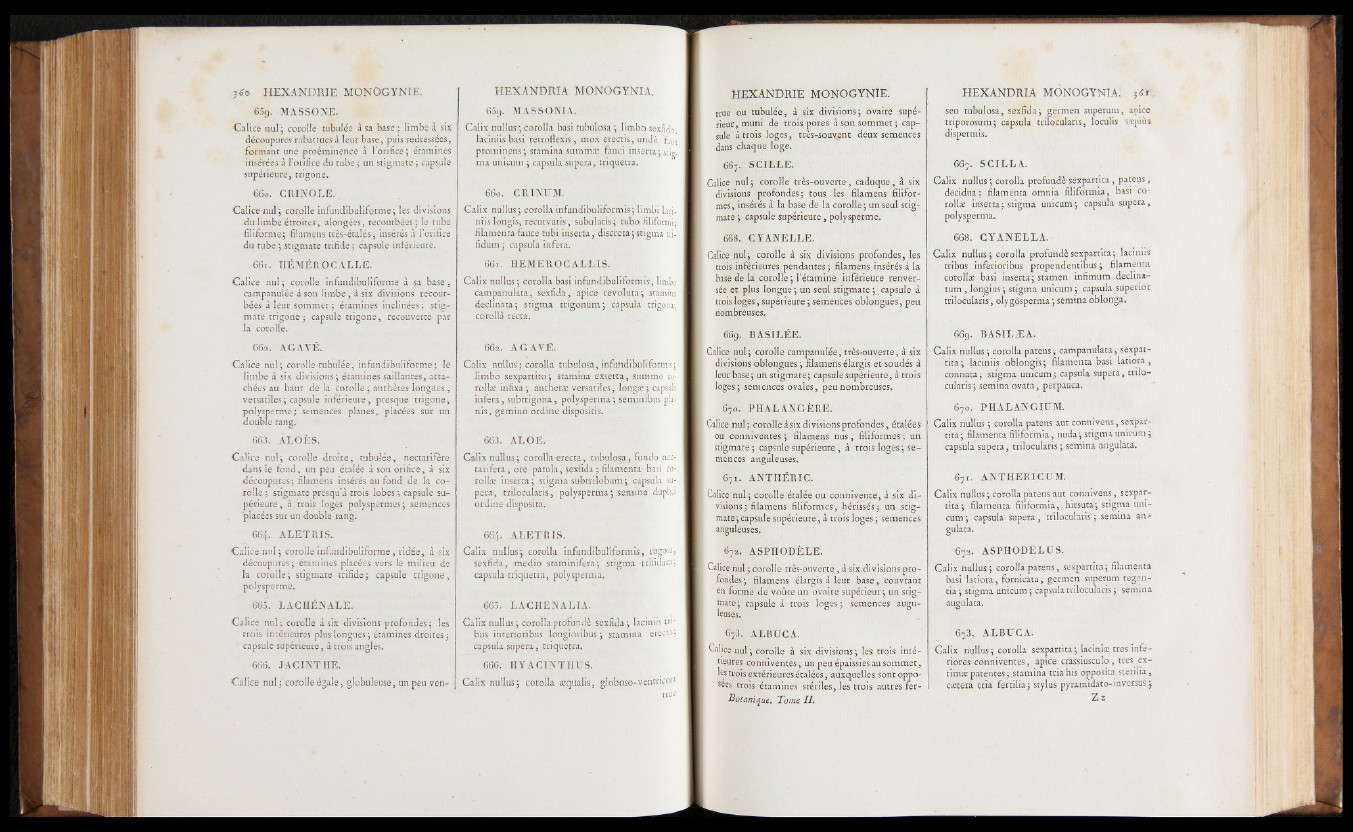 360 HEXANDRIE MONOGYNIE.
659. MASSONE.
Calice nul; corolle tubulée à sa base; limbe à six
découpures rabattues à leur base, puis redressées,
formant une proéminence à l'orifice; étamines
insérées à l'orifice du tube; un stigmate; capsule
supérieure, trigone.
660. CRINOLE.
Calice nul; corolle infundibuliforme; les divisions
du limbe étroites, alongées, recourbées; le tube
filiforme; filamens très-étalés, insérés à l'orifice
du tube; stigmate trifide; capsule inférieure.
661. HÉMÉROCALLE.
Calice nul; corolle infundibuliforme à sa base,
campanulée à son limbe, à six divisions recour-
bées à leur sommet; étamines inclinées; stig-
mate trigone; capsule trigone, recouverte par
la corolle.
662. AGAVÉ.
Calice nul; corolle tubulée, infundibuliforme; le
limbe à six divisions; étamines saillantes, atta-
chées au haut de la corolle; anthères longues,
versatiles; capsule inférieure, presque trigone,
polysperme; semences planes, placées sur un
double rang.
663. ALOÈS.
Calice nul; corolle droite, tubulée, nectarifère
dans le fond, un peu étalée à son orifice, à six
découpures; filamens insérés au fond de la co-
rolle; stigmate presqu'à trois lobes; capsule su-
périeure, à trois loges polyspermes; semences
placées sur un double rang.
664. ALETRIS.
Calice nul; corolle infundibuliforme, ridée, à six
découpures; étamines placées vers le milieu de
la corolle; stigmate trifide; capsule trigone,
polysperme.
665. LACHÉNALE.
Calice nul; corolle à six divisions profondes; les
trois intérieures plus longues; étamines droites;
capsule supérieure, à trois angles.
666. JACINTHE.
Calice nul; corolle égale, globuleuse, un peu ven-
HEXANDRIA MONOGYNIA.
659. MASSONIA.
Calix nullus; corolla basi tubulosa; limbo sexfido,
laciniis basi retroflexis, mox erectis, undè faux
prominens; stamina summæ fauci inserta; stig-
ma unicum; capsula supera, triquetra.
660. CRINUM.
Calix nullus; corolla infundibuliformis; limbi laci-
niis longis, recurvatis, subulatis; tubo filiformi;
filamenta fauce tubi inserta, discreta; stigma tri-
fidum; capsula infera.
661. HEMEROCALLIS.
Calix nullus; corolla basi infundibuliformis, limbo
campanulata, sexfida, apice revoluta; stamina
declinata; stigma trigonum; capsula trigona,
corollâ tecta.
662. AGAVÉ.
Calix nullus; corolla tubulosa, infundibuliformis;
limbo sexpartito; stamina exserta, summo co-
rollæ infixa; antheræ versatiles, longæ; capsula
infera, subtrigona, polysperma; seminibus pla-
nis, gemino ordine dispositis.
663. ALOE.
Calix nullus; corolla erecta, tubulosa, fundo nec-
tarifera, ore patula, sexfida; filamenta basi co-
rollæ inserta; stigma subtrilobum; capsula su-
pera, trilocularis, polysperma; semina duplici
ordine disposita.
664. ALETRIS.
Calix nullus; corolla infundibuliformis, rugosa,
sexfida, medio staminifera; stigma trifidum;
capsula triquetra, polysperma.
665. LACHENALIA.
Calix nullus; corolla profundè sexfida; laciniis tri-
bus interioribus longioribus; stamina erecta;
capsula supera, triquetra.
666. HYACINTHUS.
Calix nullus; corolla æqualis, globoso-ventricosa
HEXANDRIE MONOGYNIE.
true ou tubulée, à six divisions; ovaire supé-
rieur, muni de trois pores à son sommet; cap-
sule à trois loges, très-souvent deux semences
dans chaque loge.
667. SCILLE.
Calice nul; corolle très-ouverte, caduque, à six
divisions profondes; tous les filamens filifor-
mes, insérés à la base de la corolle; un seul stig-
mate; capsule supérieure, polysperme.
668. CYANELLE.
Calice nul; corolle à six divisions profondes, les
trois inférieures pendantes; filamens insérés à la
base de la corolle; l'étamine inférieure renver-
sée et plus longue; un seul stigmate; capsule à
trois loges, supérieure; semences oblongues, peu
nombreuses.
669. BASILÉE.
Calice nul; corolle campanulée, très-ouverte, à six
divisions oblongues; filamens élargis et soudés à
leur base; un stigmate; capsule supérieure, à trois
loges; semences ovales, peu nombreuses.
670. PHALANGÈRE.
Calice nul; corolle à six divisions profondes, étalées
ou conniventes; filamens nus, filiformes; un
stigmate; capsule supérieure, à trois loges; se-
mences anguleuses.
671. ANTHÉRIC.
Calice nul; corolle étalée ou connivente, à six di-
visions; filamens filiformes, hérissés; un stig-
mate; capsule supérieure, à trois loges; semences
anguleuses.
672. ASPHODÈLE.
Calice nul; corolle très-ouverte, à six divisions pro-
fondes; filamens élargis à leur base, couvrant
en forme de voûte un ovaire supérieur; un stig-
mate; capsule à trois loges; semences angu-
leuses.
673. ALBUCA.
Calice nul; corolle à six divisions; les trois inté-
rieures conniventes, un peu épaissies au sommet,
les trois extérieures étalées, auxquelles sont oppo-
sées trois étamines stériles, les trois autres fer-
Botanique. Tome II.
HEXANDRIA MONOGYNIA. 361
seu tubulosa, sexfida; germen superum, apice
triporosum; capsula trilocularis, loculis sæpiùs
dispermis.
667. SCILLA.
Calix nullus; corolla profundè sexpartita, patens,
decidua; filamenta omnia filiformia, basi co-
rollæ inserta; stigma unicum; capsula supera,
polysperma.
668. CYANELLA.
Calix nullus; corolla profundè sexpartita; laciniis
tribus inferioribus propendentibus; filamenta
corollæ basi inserta; stamen infimum declina-
tum, longius; stigma unicum; capsula superior
trilocularis, olygosperma; semina oblonga.
669. BASILÆA.
Calix nullus; corolla patens, campanulata, sexpar-
tita; laciniis oblongis; filamenta basi latiora,
connata; stigma unicum; capsula supera, trilo-
cularis; semina ovata, perpauca.
670. PHALANGIUM.
Calix nullus; corolla patens aut connivens, sexpar-
tita; filamenta filiformia, nuda; stigma unicum;
capsula supera, trilocularis; semina angulata.
671. ANTHERICUM.
Calix nullus; corolla patens aut connivens, sexpar-
tita; filamenta filiformia, hirsuta; stigma uni-
cum; capsula supera, trilocularis; semina an-
gulata.
672. ASPHODELUS.
Calix nullus; corolla patens, sexpartita; filamenta
basi latiora, fornicata, germen superum tegen-
tia; stigma unicum; capsula trilocularis; semina
angulata.
673. ALBUCA.
Calix nullus; corolla sexpartita; laciniæ tres infe-
riores conniventes, apice crassiusculo, tres ex-
timæ patentes; stamina tria his opposita sterilia,
cætera tria fertilia; stylus pyramidato-inversus;
Z z